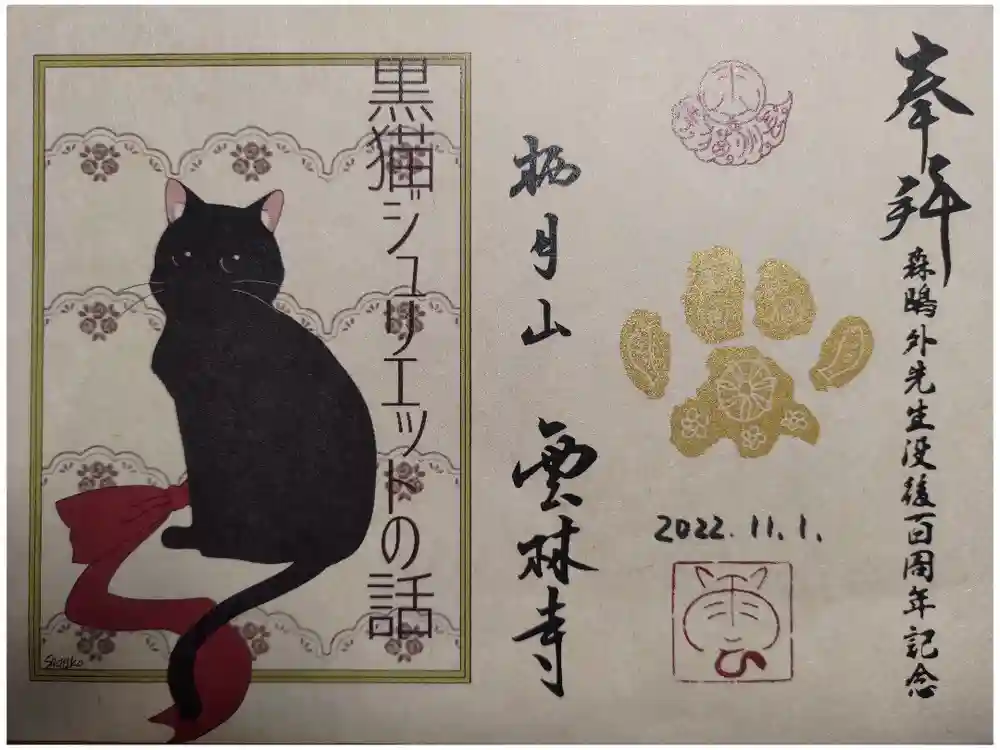 奉拝
森鴎外先生没後百周年記念
2022.11.1.
栖月山 雲林寺
黒猫ジュリエットの話